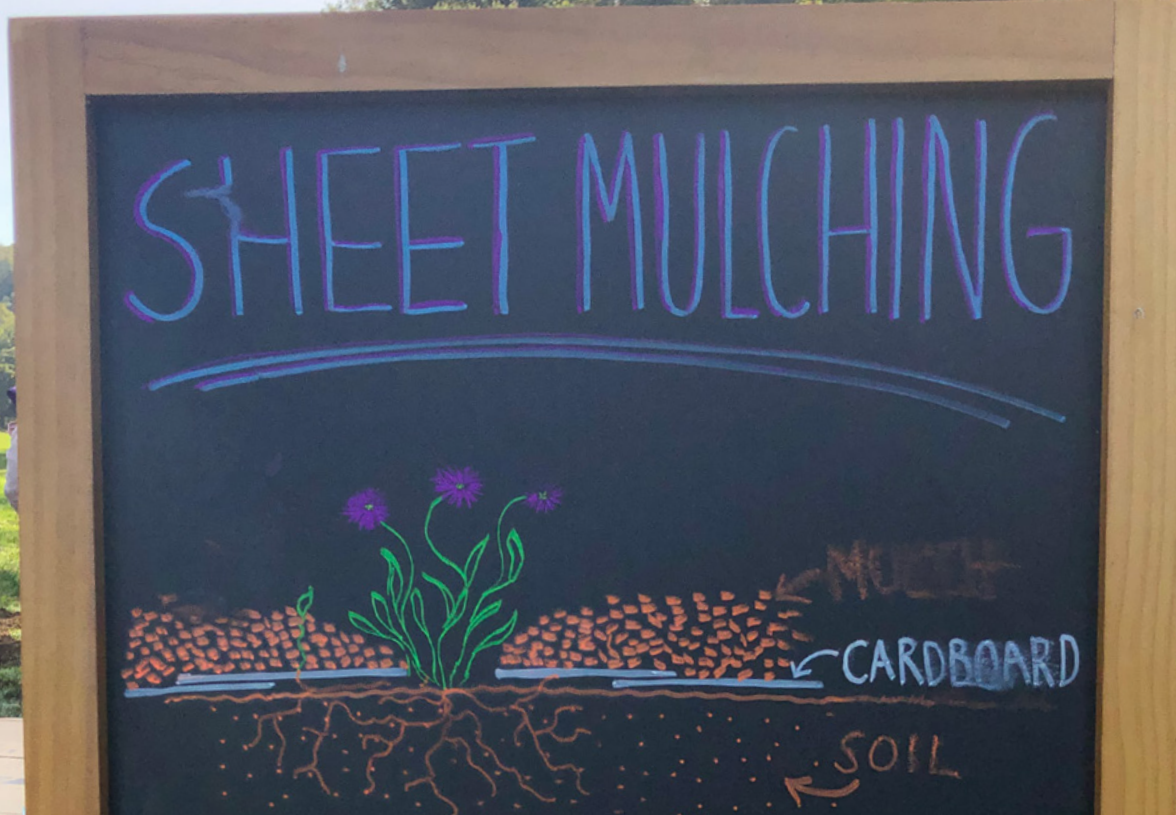 SHEET MULCHING
MULCH
CARDBOARD
SOIL